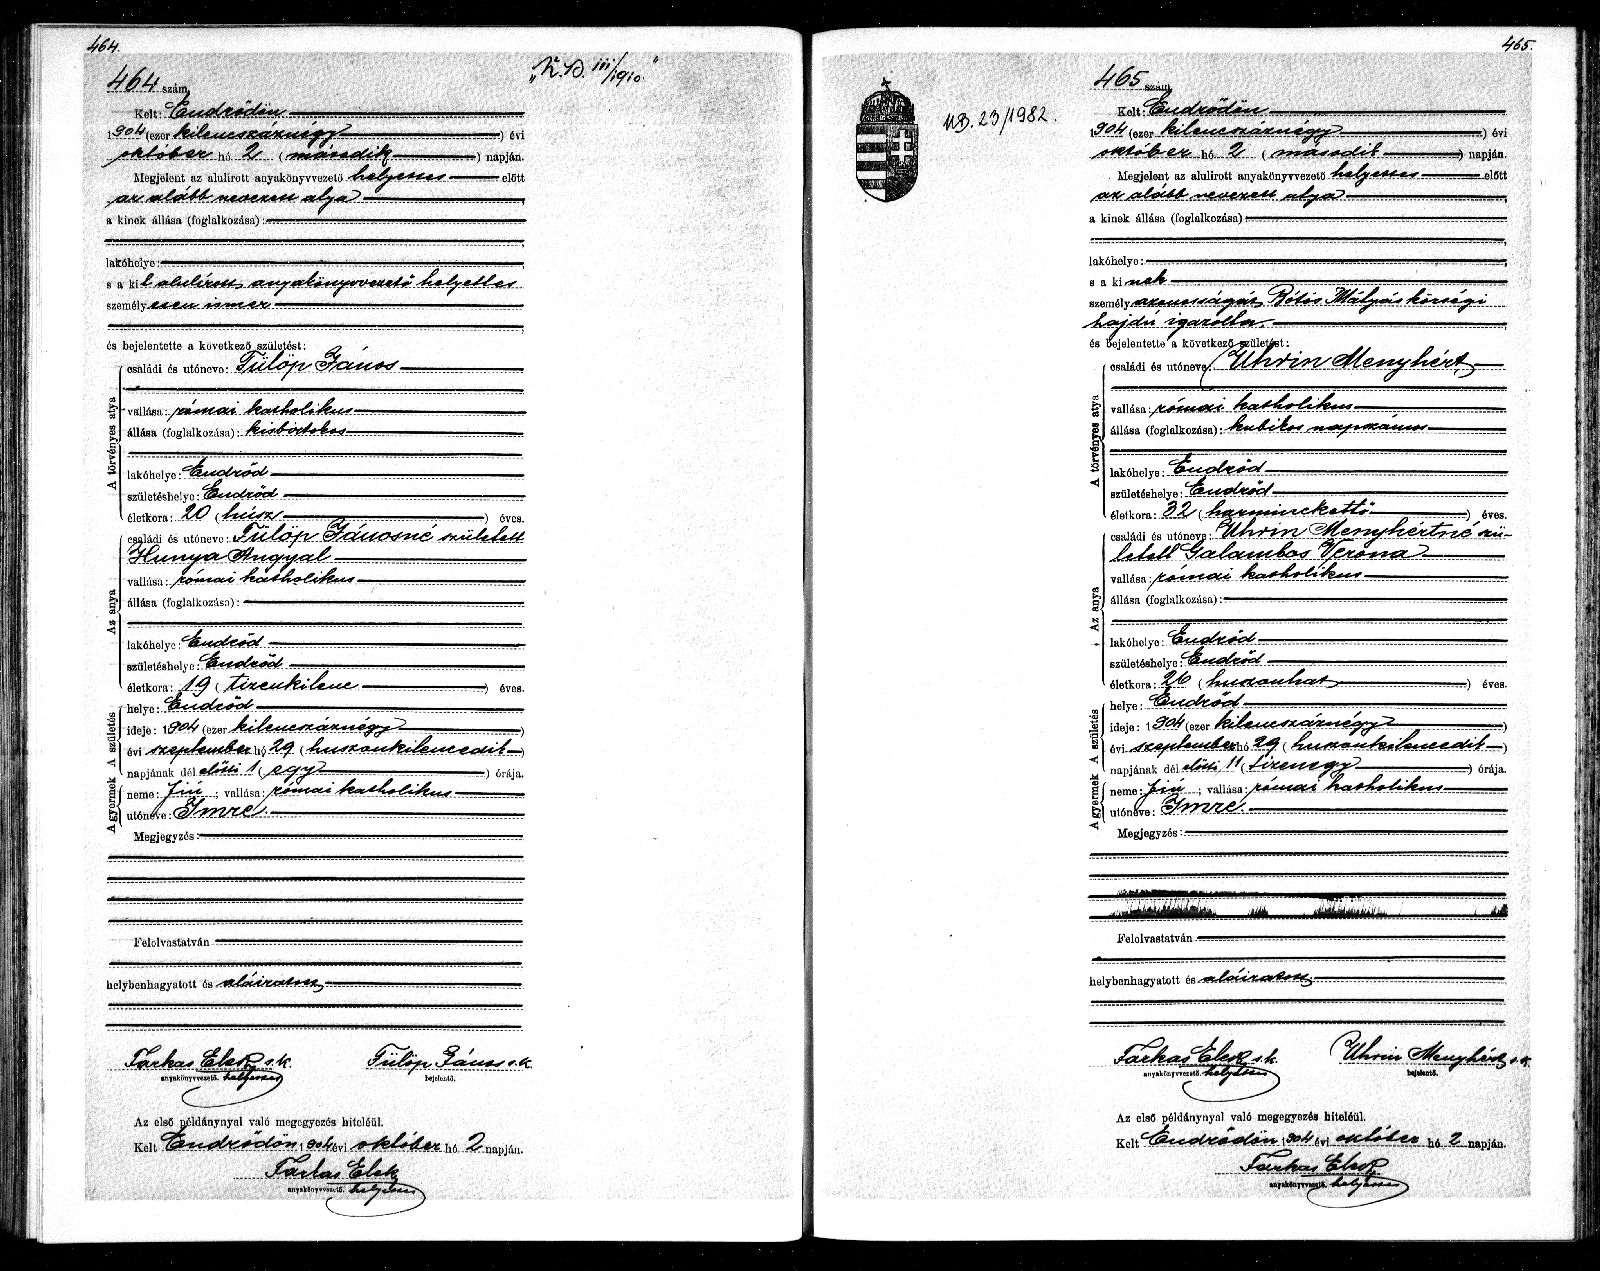 464.
464 szám
"K.D. III/1910."
Kelt: Endrődön
1904 (ezer kilencszáznégy) évi
október hó 2 (második) napján.
Megjelent az alulirott anyakönyvvezető helyettes előtt
az alább nevezett atya
a kinek állása (foglalkozása):
lakóhelye:
s a kit alulírott anyakönyvvezető helyettes
személyesen ismer
és bejelentette a következő születést:
A törvényes atya
családi és utóneve: Fülöp János
vallása: római katholikus
állása (foglalkozása): kisbirtokos
lakóhelye: Endrőd
születéshelye: Endrőd
életkora: 20 (húsz) éves.
Az anya
családi és utóneve: Fülöp Jánosné született
Hunya Angyal
vallása: római katholikus
állása (foglalkozása):
lakóhelye: Endrőd
születéshelye: Endrőd
életkora: 19 (tizenkilenc) éves.
A születés
helye: Endrőd
ideje: 1904 (ezer kilencszáznégy)
évi szeptember hó 29 (huszonkilencedik)
napjának dél előtti 1 (egy) órája.
A gyermek
neme: fiú; vallása: római katholikus
utóneve: Imre.
Megjegyzés:
Felolvastatván
helybenhagyatott és aláiratott
Farkas Elek s.k. Fülöp János s.k.
anyakönyvvezető. helyettes bejelentő.
Az első példánynyal való megegyezés hiteléül.
Kelt Endrődön 1904 évi október hó 2 napján.
Farkas Elek
anyakönyvvezető. helyettes
465.
465 szám
MB. 23/1982.
Kelt: Endrődön
1904 (ezer kilencszáznégy) évi
október hó 2 (második) napján.
Megjelent az alulirott anyakönyvvezető helyettes előtt
az alább nevezett atya
a kinek állása (foglalkozása)
lakóhelye:
s a kinek
személyazonosságát Rótós Mátyás községi
hajdú igazolta.
és bejelentette a következő születést:
A törvényes atya
családi és utóneve: Uhrin Menyhért
vallása: római katholikus
állása (foglalkozása): kubikos napszámos
lakóhelye: Endrőd
születéshelye: Endrőd
életkora: 32 (harminckettő) éves.
Az anya
családi és utóneve: Uhrin Menyhértné szü-
letett Galambos Verona
vallása: római katholikus
állása (foglalkozása):
lakóhelye: Endrőd
születéshelye: Endrőd
életkora: 26 (huszonhat) éves.
A születés
helye: Endrőd
ideje: 1904 (ezer kilencszáznégy)
évi szeptember hó 29 (huszonkilencedik)
napjának dél előtti 11 (tizenegy) órája.
A gyermek
neme: fiú; vallása: római katholikus
utóneve: Imre.
Megjegyzés:
Felolvastatván
helybenhagyatott és aláiratott
Farkas Elek s.k. Uhrin Menyhért s.k.
anyakönyvvezető. helyettes bejelentő.
Az első példánynyal való megegyezés hiteléül.
Kelt Endrődön 1904 évi október hó 2 napján.
Farkas Elek
anyakönyvvezető. helyettes